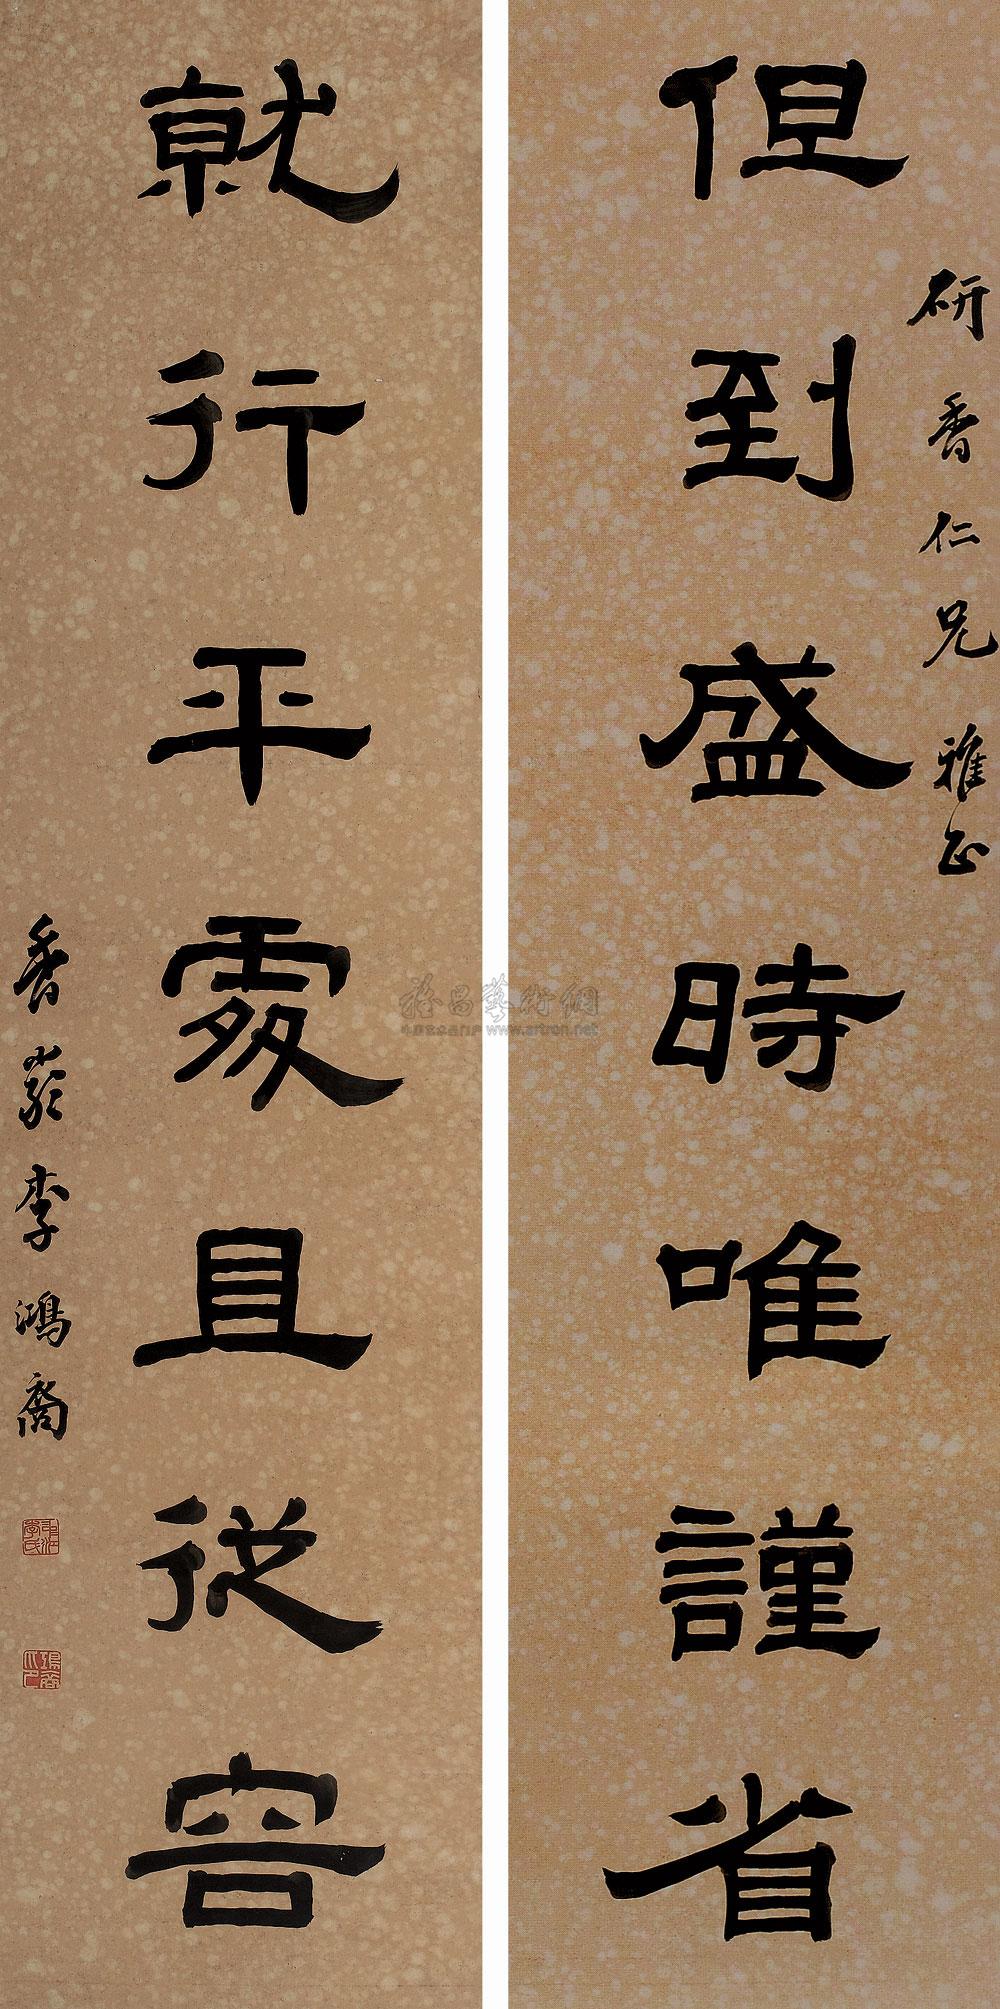 研香仁兄雅正
但到盛時唯謹省
就行平處且從容
香嚴李鴻裔
雅昌藝術網
www.artron.net